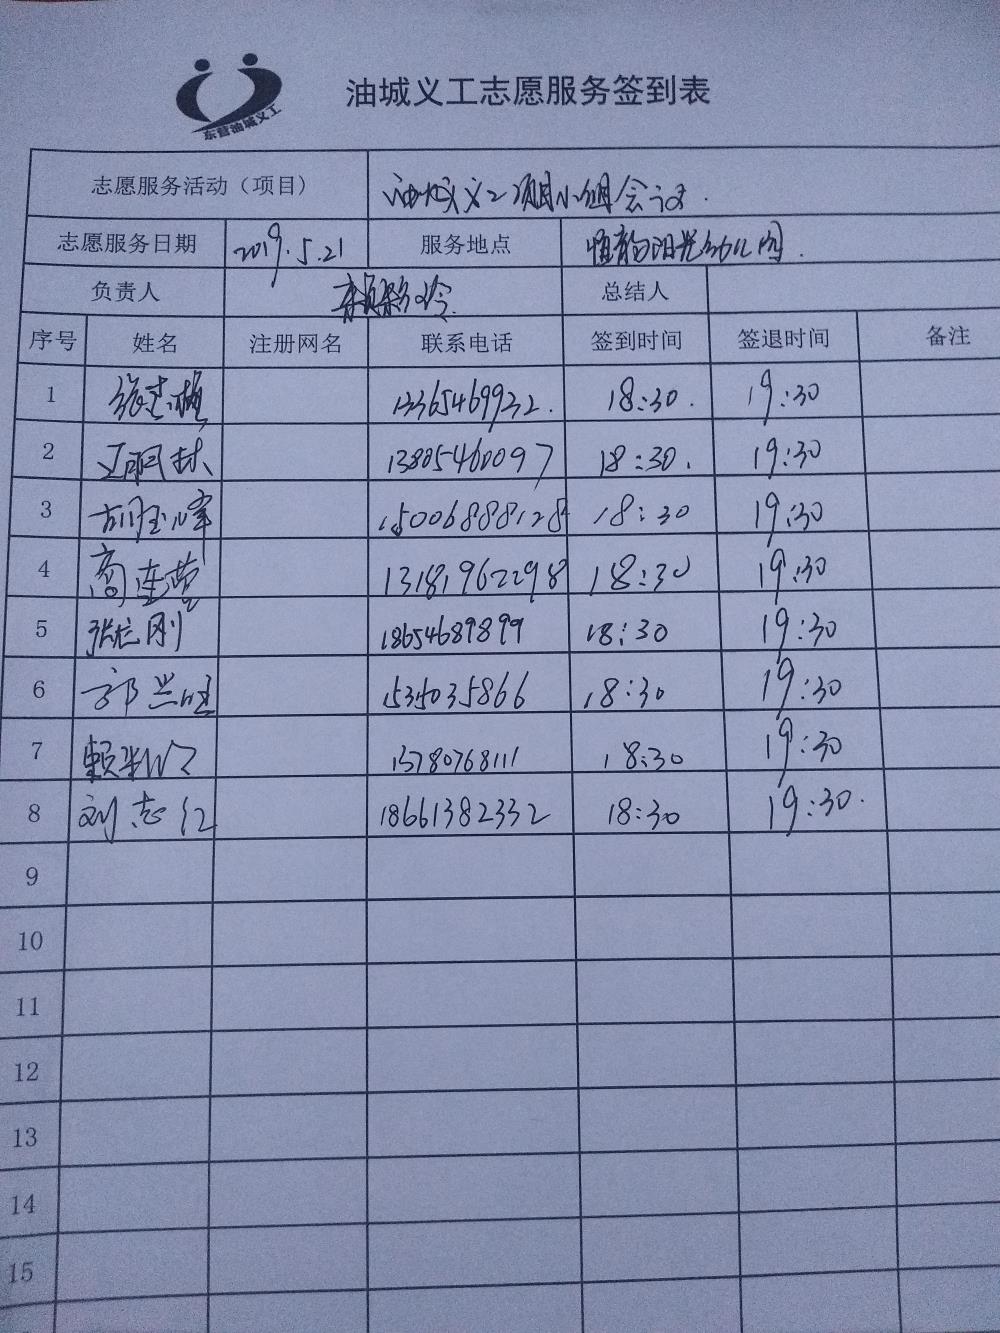 东营油城义工
油城义工志愿服务签到表
志愿服务活动（项目） 油城义工项目小组会议.
志愿服务日期 2019.5.21 服务地点 恒韵阳光幼儿园.
负责人 总结人
序号 姓名 注册网名 联系电话 签到时间 签退时间 备注
1 张志梅 13365469932. 18:30. 19:30
2 13805460097 18:30. 19:30
3 15006888128 18:30 19:30
4 高连营 13181962298 18:30 19:30
5 刚 18654689899 18:30 19:30
6 郭兰旺 15315035866 18:30 19:30
7 13780768111 18:30 19:30
8 刘志红 18661382332 18:30 19:30.
9
10
11
12
13
14
15